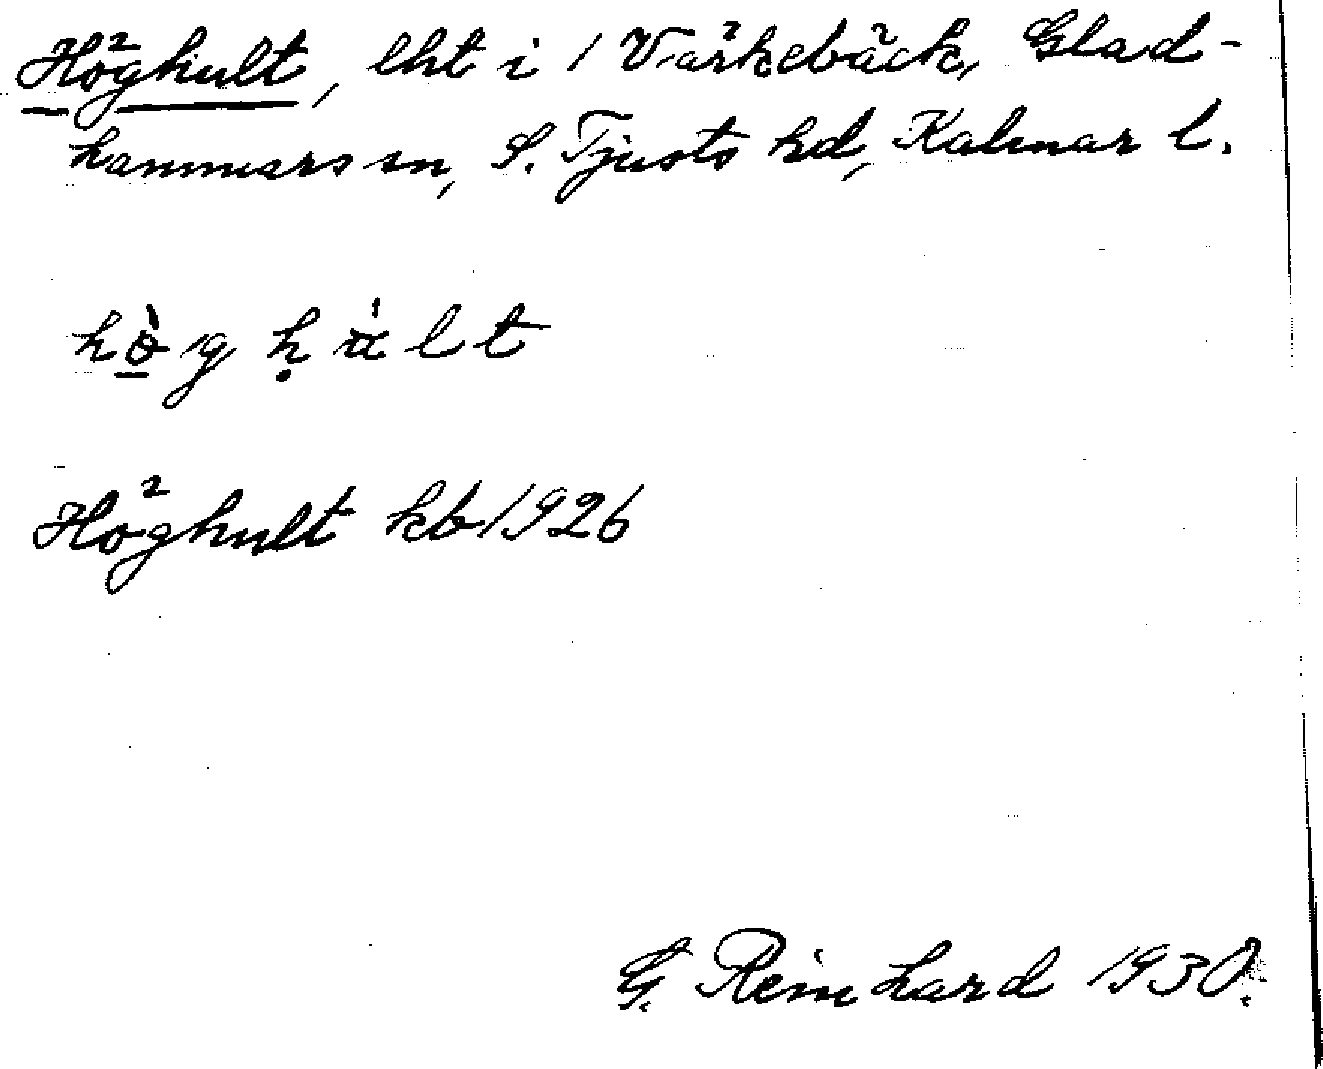 Höghult, lht i 1 Värkebäck, Glad-
hammars sn, S. Tjusts hd, Kalmar l.
Höghult kb 1926
G. Reinhard 1930.